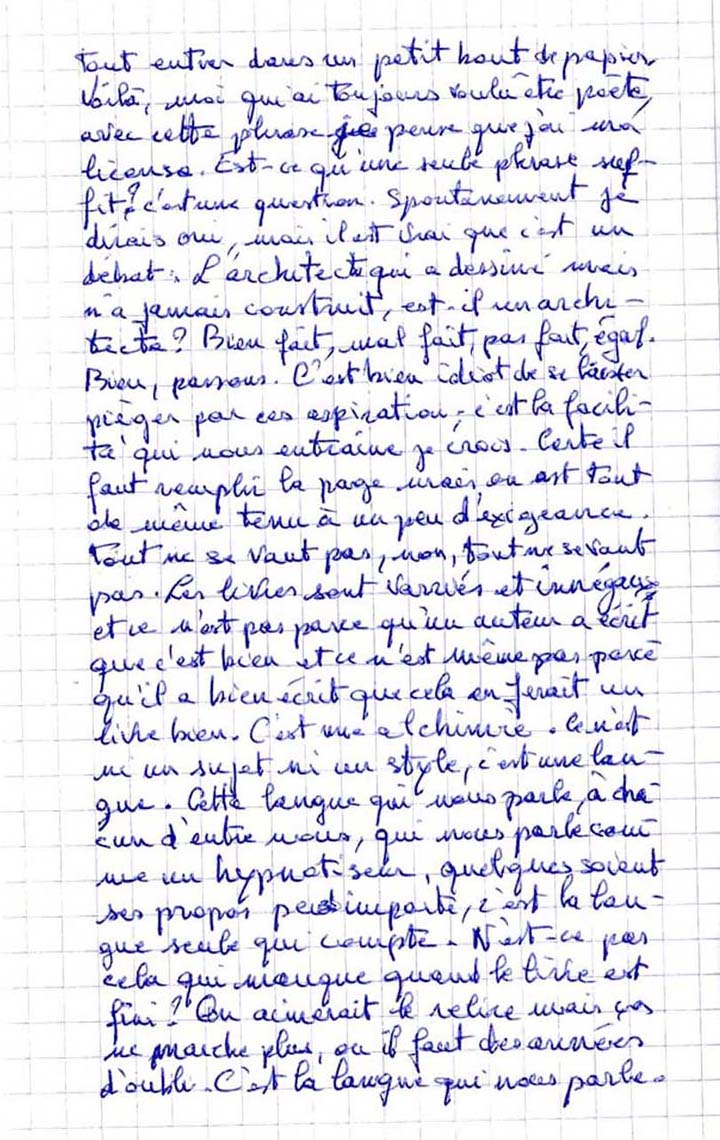 tout entier dans un petit bout de papier
Voilà, moi qui ai toujours voulu être poète,
avec cette phrase je pense que j'ai ma
licence. Est-ce qu'une seule phrase suf-
fit? c'est une question. Spontanément je
dirais oui, mais il est vrai que c'est un
débat. L'architecte qui a dessiné mais
n'a jamais construit, est-il un archi-
tecte? Bien fait, mal fait, pas fait, égal.
Bien, passons. C'est bien idiot de se laisser
pièger par ces aspiration, c'est la facili-
té qui nous entraîne je crois. Certe il
faut remplir la page mais on est tout
de même tenu à un peu d'exigeance.
Tout ne se vaut pas, non, tout ne se vaut
pas. Les livres sont varriés et innégaux
et ce n'est pas parce qu'un auteur a écrit
que c'est bien et ce n'est même pas parce
qu'il a bien écrit que cela en ferait un
livre bien. C'est une alchimie. Ce n'est
ni un sujet ni un style, c'est une lan-
gue. Cette langue qui nous parle, à cha-
cun d'entre nous, qui nous parle com-
me un hypnotiseur, quelques soient
ses propos peu importe, c'est la lan-
gue seule qui compte. N'est-ce pas
cela qui manque quand le livre est
fini? On aimerait le relire mais ças
ne marche plus, ou il faut des années
d'oubli. C'est la langue qui nous parle.